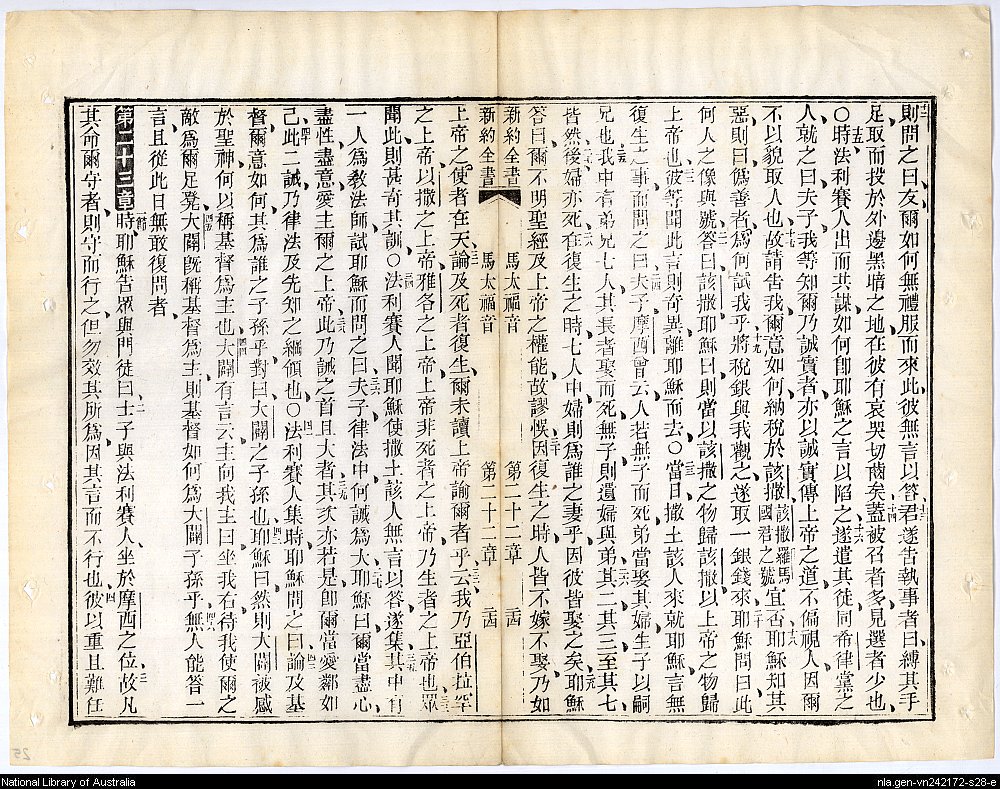 則問之曰友爾如何無禮服而來此彼無言以答君遂告執事者曰縛其手
足取而投於外邊黑暗之地在彼有哀哭切齒矣蓋被召者多見選者少也
○時法利賽人出而共謀如何卽耶穌之言以陷之遂遣其徒同希律黨之
人就之曰夫子我等知爾乃誠實者亦以誠實傳上帝之道不偏視人因爾
不以貌取人也故請告我爾意如何納稅於該撒該撒羅馬國君之號宜否耶穌知其
惡則曰僞善者爲何試我乎將稅銀與我觀之遂取一銀錢來耶穌問曰此
何人之像與號答曰該撒耶穌曰則當以該撒之物歸該撒以上帝之物歸
上帝也彼等聞此言則奇異離耶穌而去○當日撒土該人來就耶穌言無
復生之事而問之曰夫子摩西曾云人若無子而死弟當娶其婦生子以嗣
兄也我中有弟兄七人其長者娶而死無子則遺婦與弟其二其三至其七
皆然後婦亦死在復生之時七人中婦則爲誰之妻乎因彼皆娶之矣耶穌
答曰爾不明聖經及上帝之權能故謬悞因復生之時人皆不嫁不娶乃如
新約全書 馬太福音 第二十二章
新約全書 馬太福音 第二十二章
上帝之使者在天論及死者復生爾未讀上帝諭爾者乎云我乃亞伯拉罕
之上帝以撒之上帝雅各之上帝上帝非死者之上帝乃生者之上帝也眾
聞此則甚奇其訓○法利賽人聞耶穌使撒土該人無言以答遂集其中有
一人爲教法師試耶穌而問之曰夫子律法中何誡爲大耶穌曰爾當盡心
盡性盡意愛主爾之上帝此乃誡之首且大者其次亦若是卽爾當愛鄰如
己此二誡乃律法及先知之綱領也○法利賽人集時耶穌問之曰論及基
督爾意如何其爲誰之子孫乎對曰大闢之子孫也耶穌曰然則大闢被感
於聖神何以稱基督爲主也大闢有言云主向我主曰坐我右待我使爾之
敵爲爾足凳大闢旣稱基督爲主則基督如何爲大闢子孫乎無人能答一
言且從此日無敢復問者
第二十三章時耶穌告眾與門徒曰士子與法利賽人坐於摩西之位故凡
其命爾守者則守而行之但勿效其所爲因其言而不行也彼以重且難任
25
National Library of Australia
nla.gen-vn242172-s28-e